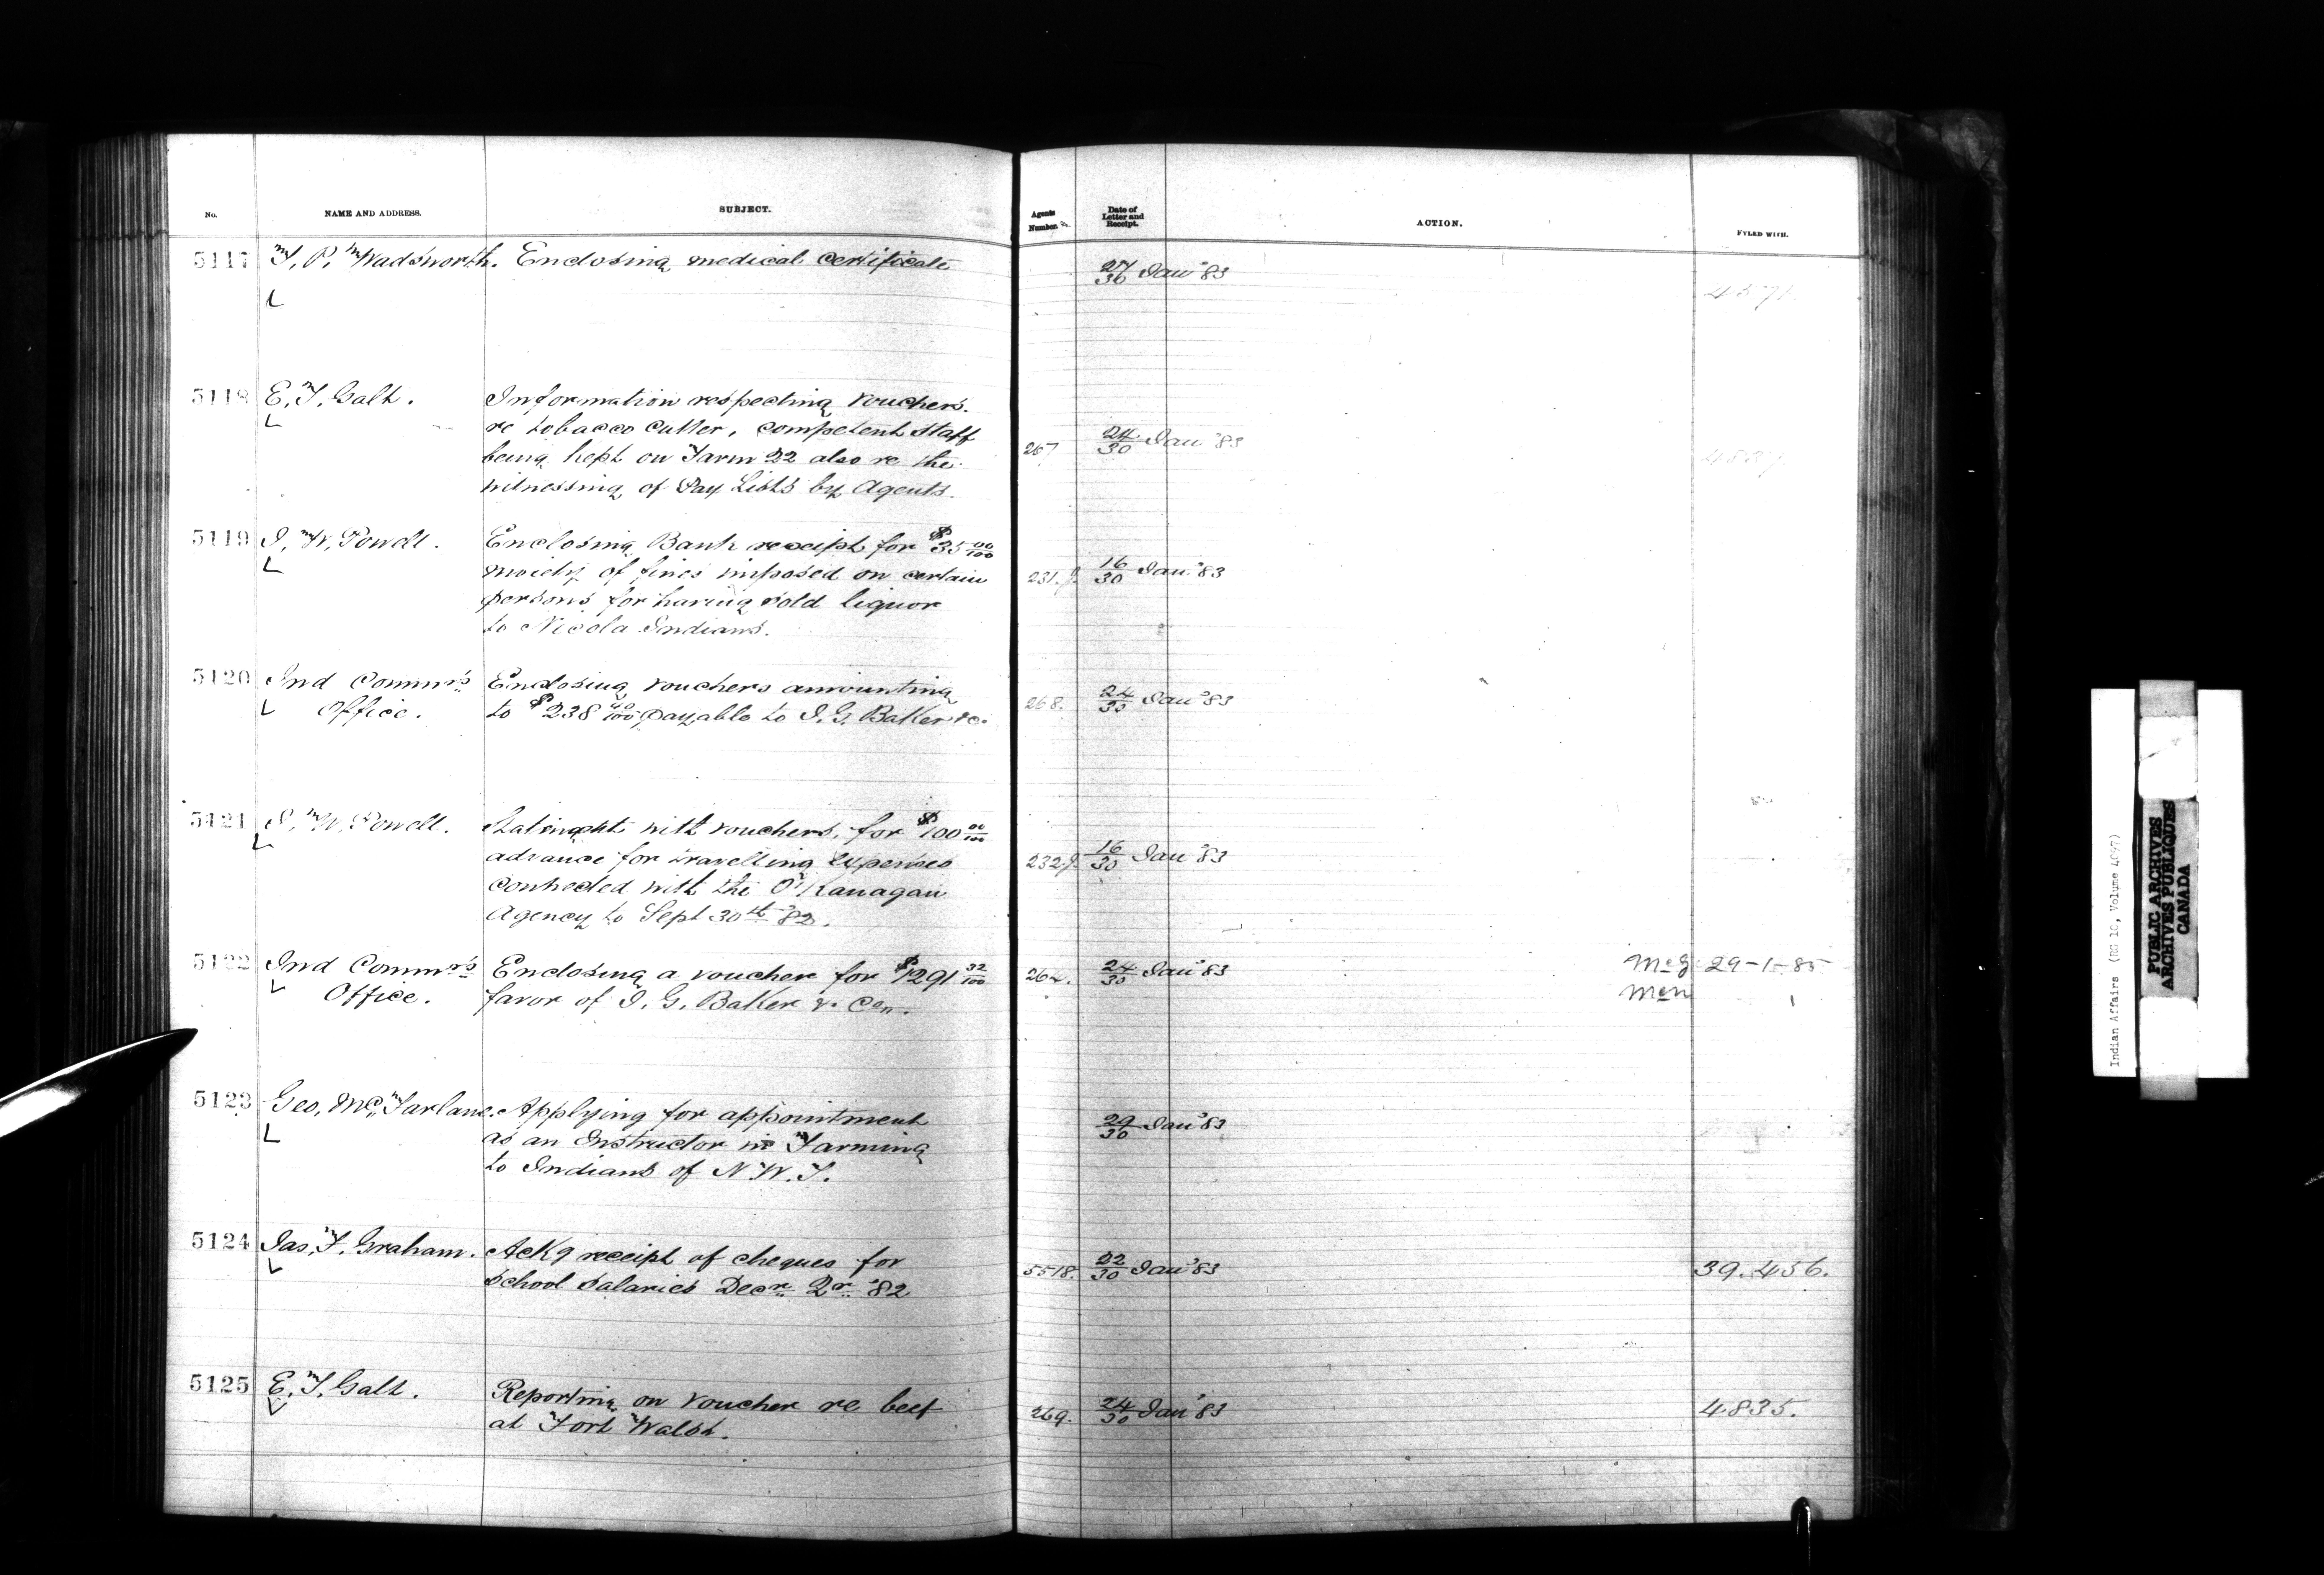 No. NAME AND ADDRESS. SUBJECT. Agents Number. Date of Letter and Receipt. ACTION. FYLED WITH.
5117 T. P. Wadsworth. Enclosing medical certificate 27/30 Jan '83
5118 E. T. Galt. Information respecting vouchers.
re tobacco cutter, competent staff
being kept on Farm 22 also re the 267 24/30 Jan '83
witnessing of Pay Lists by Agents.
5119 I. W. Powell. Enclosing Bank receipt for $35 00/100
moiety of fines imposed on certain 231. 16/30 Jan '83
persons for having sold liquor
to Nicola Indians.
5120 Ind Commrs Enclosing vouchers amounting
Office. to $238 40/100 payable to I. G. Baker &c. 268. 24/30 Jan '83
5121 I. W. Powell. with vouchers, for $100 00/100
advance for travelling expenses 232 16/30 Jan '83
connected with the O'Kanagan
Agency to Sept 30th '82.
5122 Ind Commrs Enclosing a voucher for $1291 32/100 264. 24/30 Jan '83 29-1-85
Office. favor of I. G. Baker & Co.
5123 Geo. McFarlane. Applying for appointment 29/30 Jan '83
as an Instructor in Farming
to Indians of N.W.T.
5124 Jas. F. Graham. Ackg receipt of cheques for 5518. 22/30 Jan '83 39.456.
school salaries Decr Qr '82
5125 E. T. Galt. Reporting on voucher re beef 269. 24/30 Jan '83 4835.
at Fort Walsh.
Indian Affairs (RG 10, Volume 4097)
PUBLIC ARCHIVES
ARCHIVES PUBLIQUES
CANADA